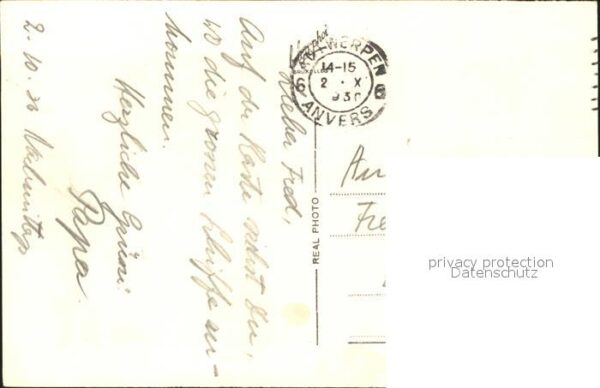 Lieber Fred,
Auf der Karte siehst Du,
wo die grossen Schiffe an-
kommen.
Herzliche Grüsse
Papa.
2. 10. 30
ANTWERPEN
14-15
2 · X
930
6 6
ANVERS
REAL PHOTO
An
Fre
privacy protection
Datenschutz